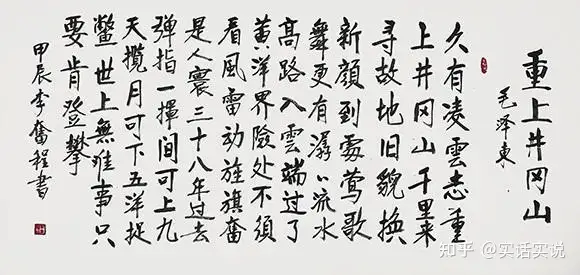 重上井冈山
毛泽东
久有凌雲志重
上井冈山千里来
寻故地旧貌换
新顔到處莺歌
舞更有潺〻流水
高路入雲端过了
黄洋界險处不須
看風雷动旌旗奮
是人寰三十八年过去
弹指一揮间可上九
天揽月可下五洋捉
鳖世上無难事只
要肯登攀
甲辰李奮程書
知乎 @实话实说